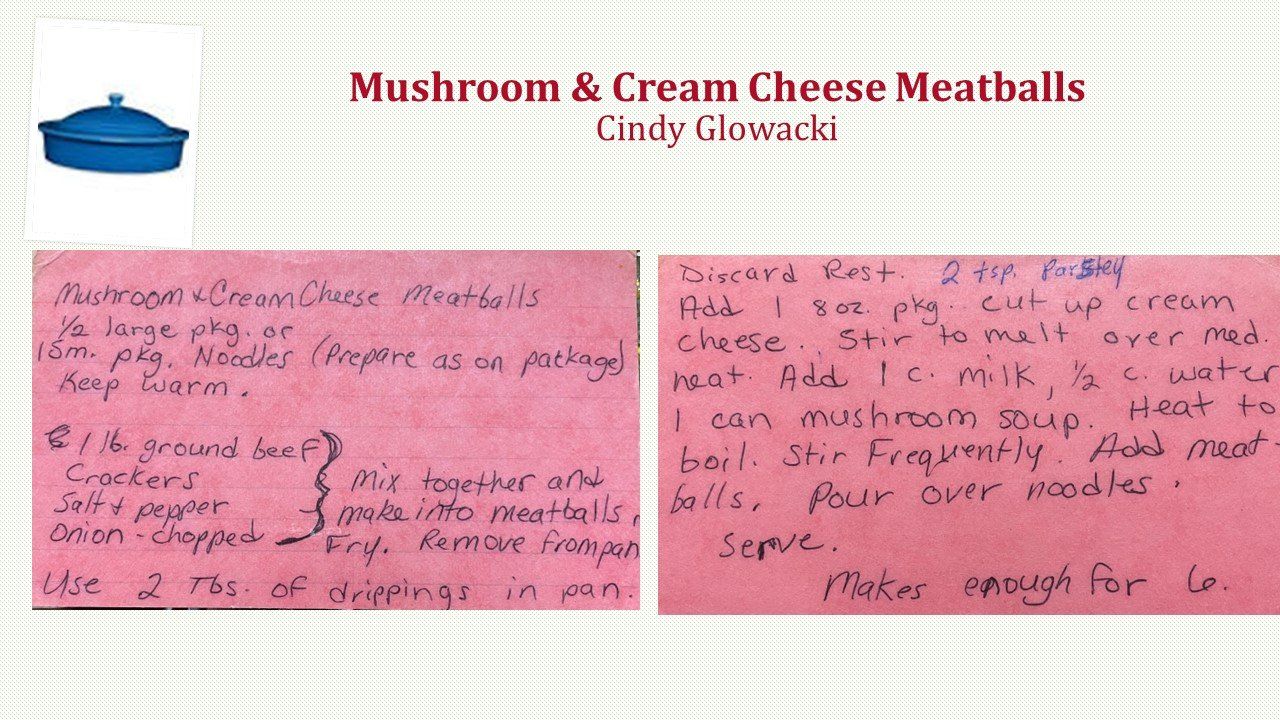 Mushroom & Cream Cheese Meatballs
Cindy Glowacki
Mushroom & Cream Cheese Meatballs
1/2 large pkg. or
1 Sm. pkg. Noodles (Prepare as on package)
Keep warm.
1 lb. ground beef
Crackers
Salt & pepper
Onion - chopped
Mix together and
make into meatballs,
Fry. Remove from pan
Use 2 Tbs. of drippings in pan.
Discard Rest. 2 tsp. Parsley
Add 1 8 oz. pkg. cut up cream
cheese. Stir to melt over med.
heat. Add 1 c. milk, 1/2 c. water
1 can mushroom soup. Heat to
boil. Stir Frequently. Add meat
balls. Pour over noodles.
Serve.
Makes enough for 6.